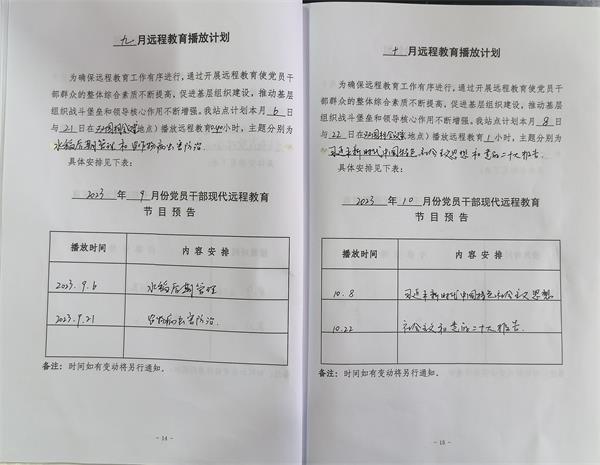 九月远程教育播放计划
为确保远程教育工作有序进行,通过开展远程教育使党员干
部群众的整体综合素质不断提高,促进基层组织建设,推动基层
组织战斗堡垒和领导核心作用不断增强。我站点计划本月6日
与21日在 地点)播放远程教育 小时,主题分别为
水稻后期管理和 作物病虫害防治。
具体安排见下表:
2023年9月份党员干部现代远程教育
节目预告
播放时间 内容安排
2023.9.6 水稻后期管理
2023.9.21 作物病虫害防治.
备注:时间如有变动将另行通知。
- 14 -
十月远程教育播放计划
为确保远程教育工作有序进行,通过开展远程教育使党员干
部群众的整体综合素质不断提高,促进基层组织建设,推动基层
组织战斗堡垒和领导核心作用不断增强。我站点计划本月8日
与22日在 地点)播放远程教育1小时,主题分别为
习近平新时代中国特色社会主义思想和党的二十大报告.
具体安排见下表:
2023年10月份党员干部现代远程教育
节目预告
播放时间 内容安排
10.8 习近平新时代中国特色社会主义思想
10.22 社会主义和党的二十大报告.
备注:时间如有变动将另行通知。
- 15 -